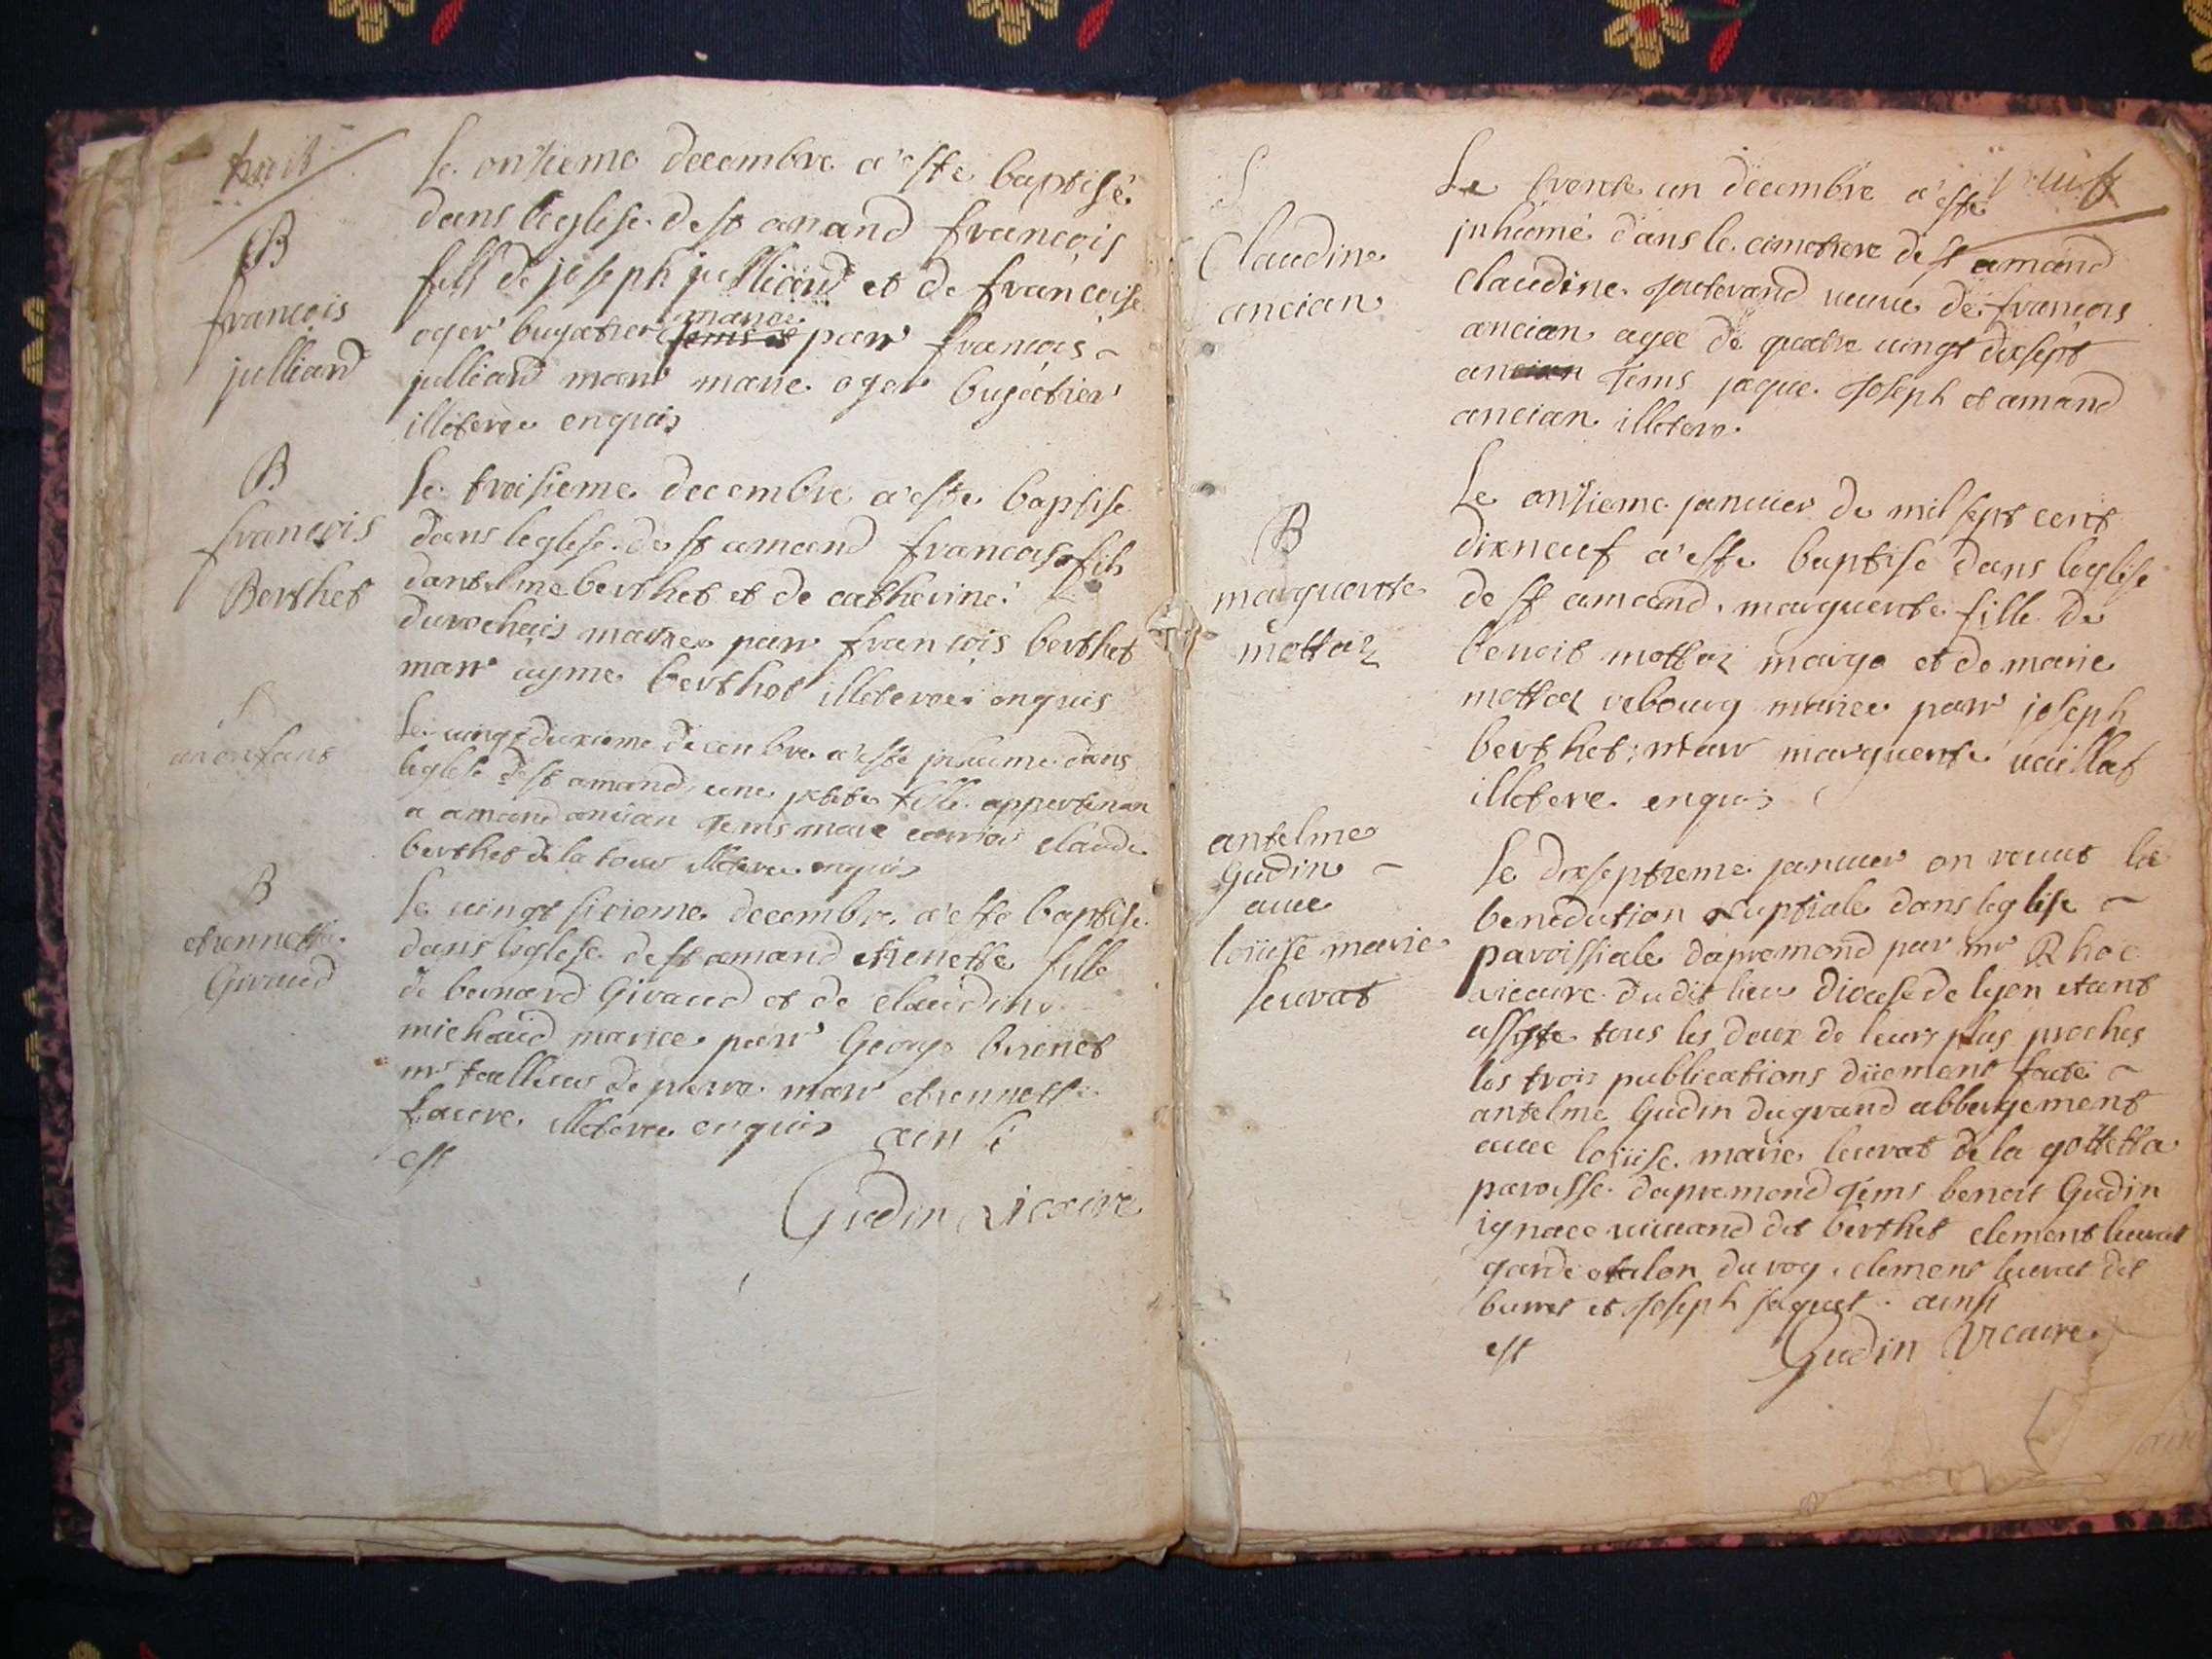 huit
B
francois
julliard
le onsieme decembre a este baptisé
dans leglise de st amand françois
fils de joseph julliard et de francoise
oger bugatier mariee parr françois
julliard marr marie oger bugatier
illeteree enquis
B
francois
Berthet
le troisieme decembre a este baptise
dans leglise de st amand francois fils
dantelme berthet et de catherine
durochais mariee parr francois berthet
marr ayme berthet illeterees enquis
S
un enfant
le vingt deuxieme decenbre a este jnhume dans
leglise de st amand une petite fille appertenan
a amand ancian tems marc claude
berthet de la tour illeteree enquis
B
etiennette
Giraud
le vingt sixieme decembre a este baptise
dans leglese de st amand etienette fille
de bernard Giraud et de claudine
michaud mariee parr George
mr tallieur de pierre marr etiennette
faure illeteree enquis ainsi
est
Gudin Vicaire
neuf
S
Claudine
ancian
Le trente un decembre a este
jnhumé dans le cimetiere de st amand
claudine veuve de françois
ancian agee de quatre vingt dixsept
an tems jaque Joseph et amand
ancian illetere
B
marguerite
mottaz
Le onsieme janvier de mil sept cent
dixneuf a este baptise dans leglise
de st amand marguerite fille de
benoit mottaz et de marie
mottaz rebourg mariee parr joseph
berthet; marr marguerite vaillat
illetere enquis
antelme
Gudin
avec
loüise marie
leurat
le dixseptieme janvier on receut la
benediction nuptiale dans leglise
paroissiale dapremond par mr Rhoe
vicaire du dit lieu diocese de lyon etant
assiste tous les deux de leurs plus proches
les trois publications düement faite
antelme Gudin du grand abbergement
avec loüise marie leurat de la gottetta
paroisse dapremond tems benoit Gudin
ignace vuilland dit berthet clement leurat
garde etalon du roy clement leurat dit
burret et Joseph jaquet ainsi
est
Gudin Vicaire